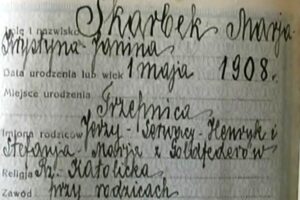 Imię i nazwisko Skarbek Marja-
Krystyna-Janina
Data urodzenia lub wiek 1 maja 1908.
Miejsce urodzenia
Trzepnica
Imiona rodziców Jerzy- -Henryk i
Stefanja- Marja z Goldfederów
Religja Rz. Katolicka
Zawód przy rodzicach